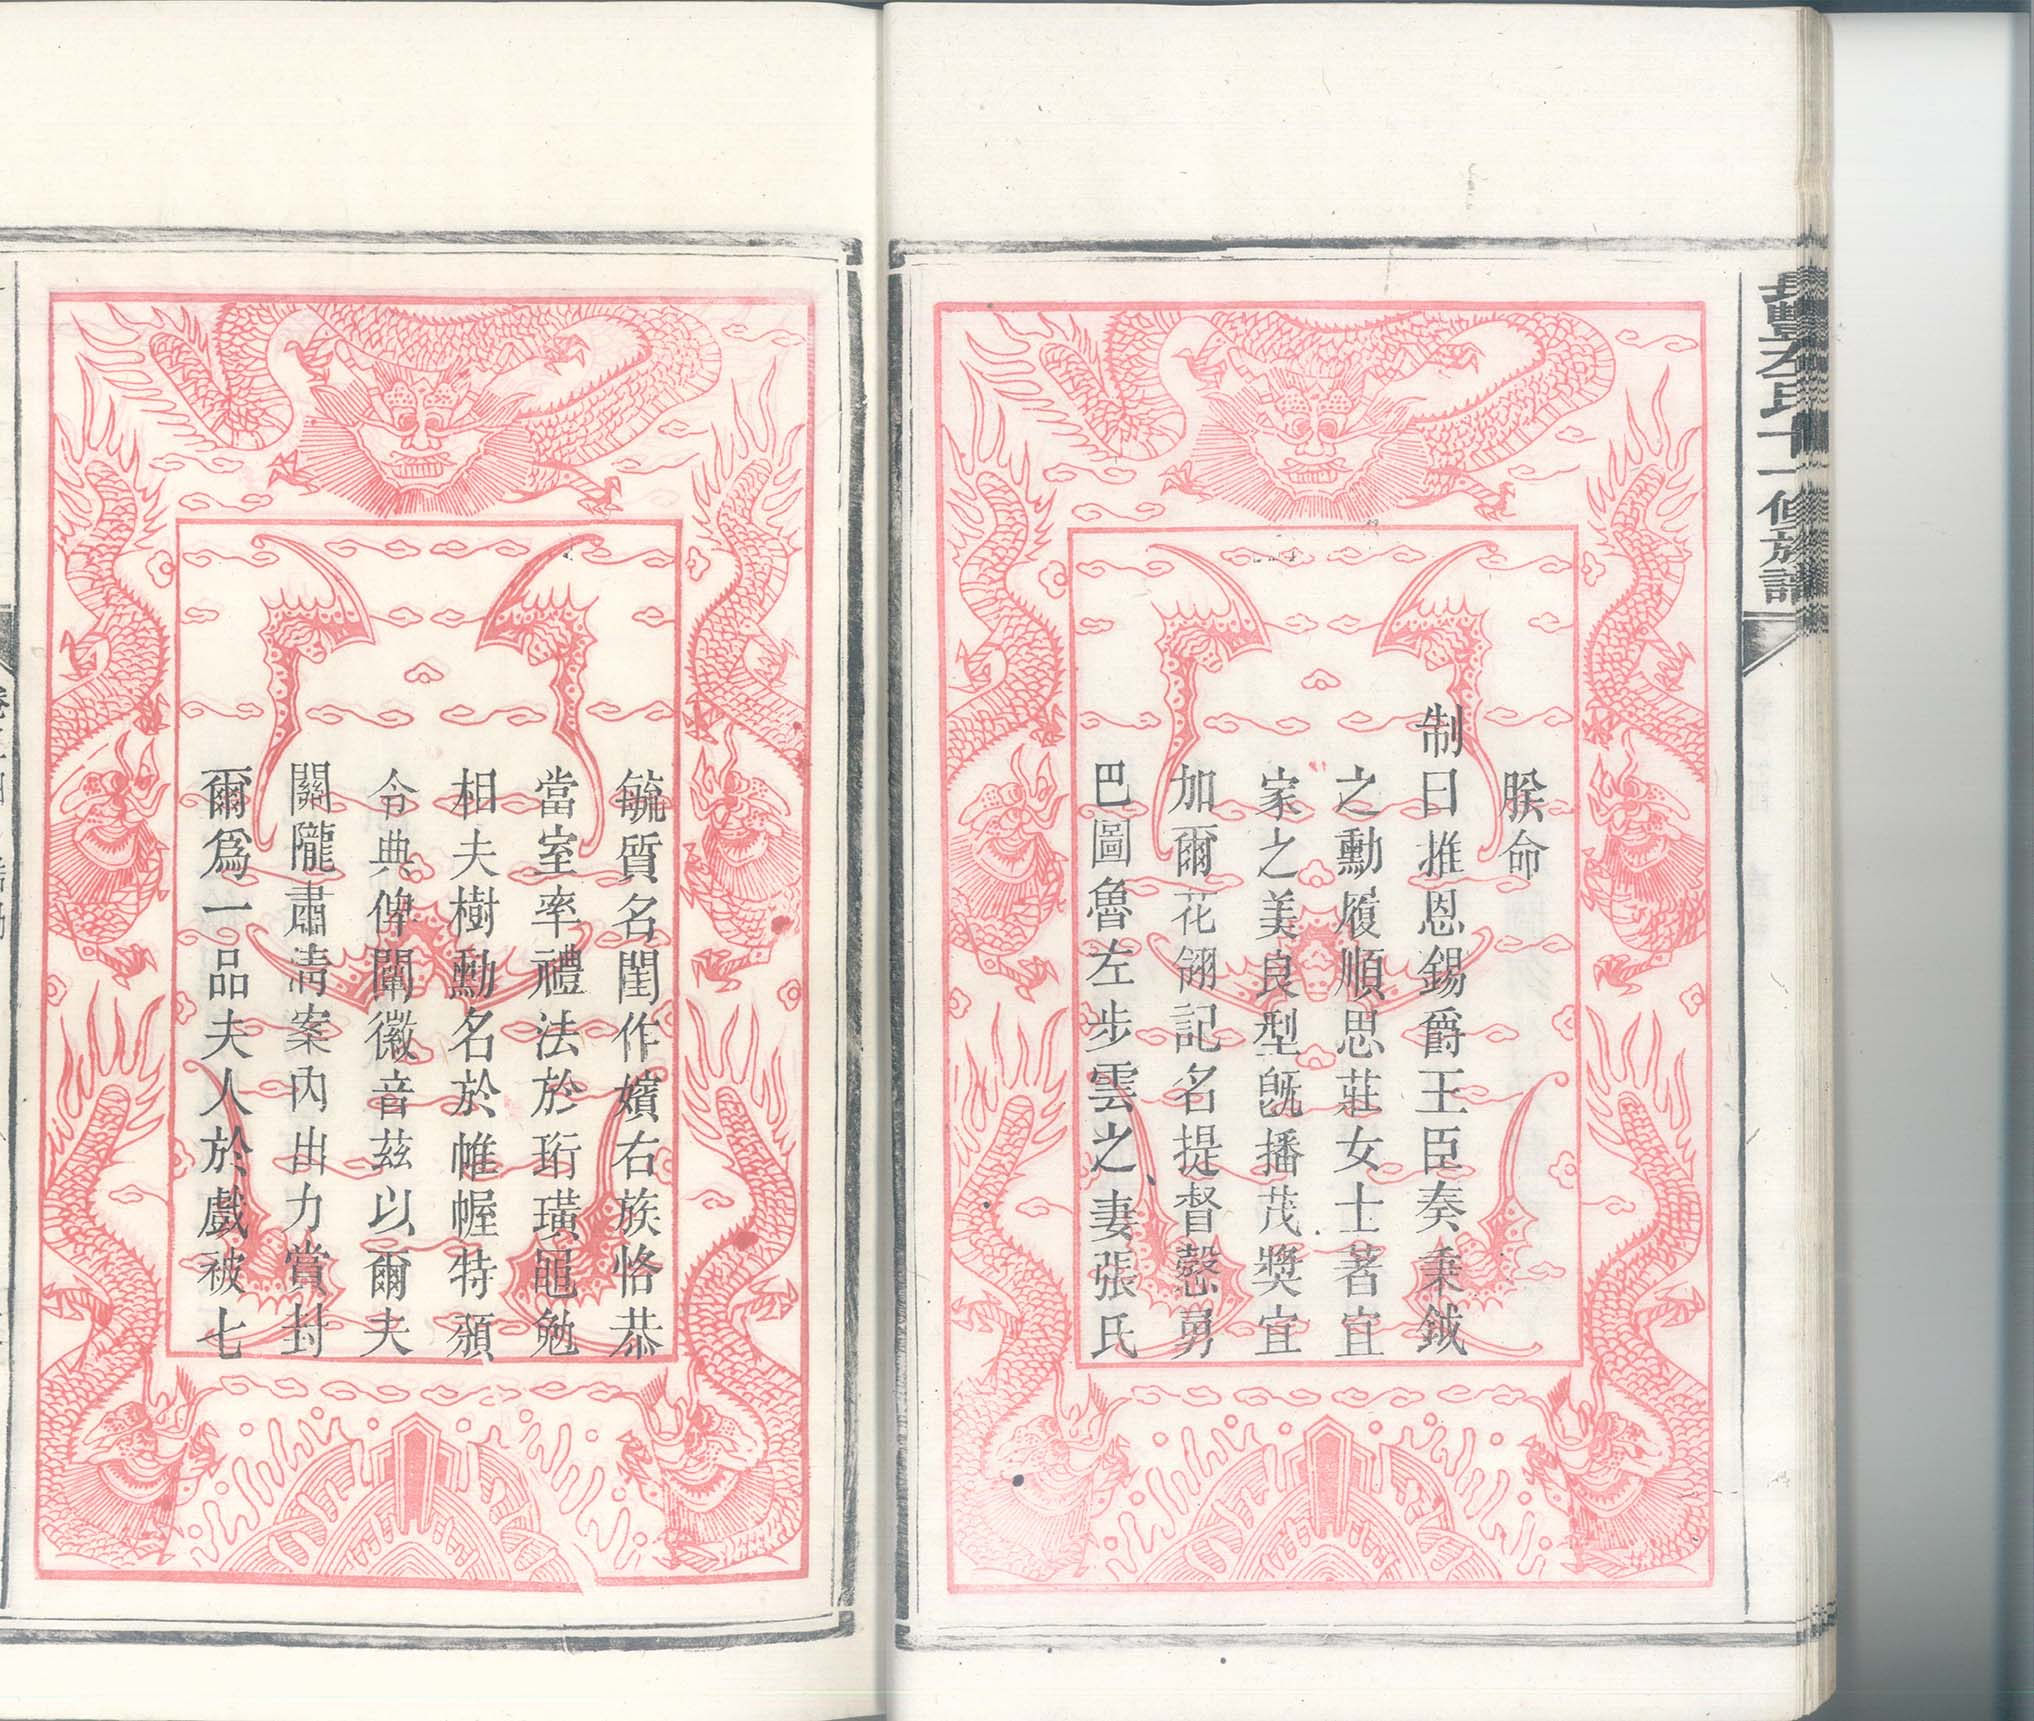 長豐左氏十一修族譜
朕命
制曰推恩錫爵王臣奏秉鉞
之勳履順思莊女士著宜
家之美良型旣播茂獎宜
加爾花翎記名提督慤勇
巴圖魯左步雲之妻張氏
毓質名閨作嬪右族恪恭
當室率禮法於珩璜黽勉
相夫樹勳名於帷幄特頒
令典俾闡徽音茲以爾夫
關隴肅清案內出力賞封
爾爲一品夫人於戲被七